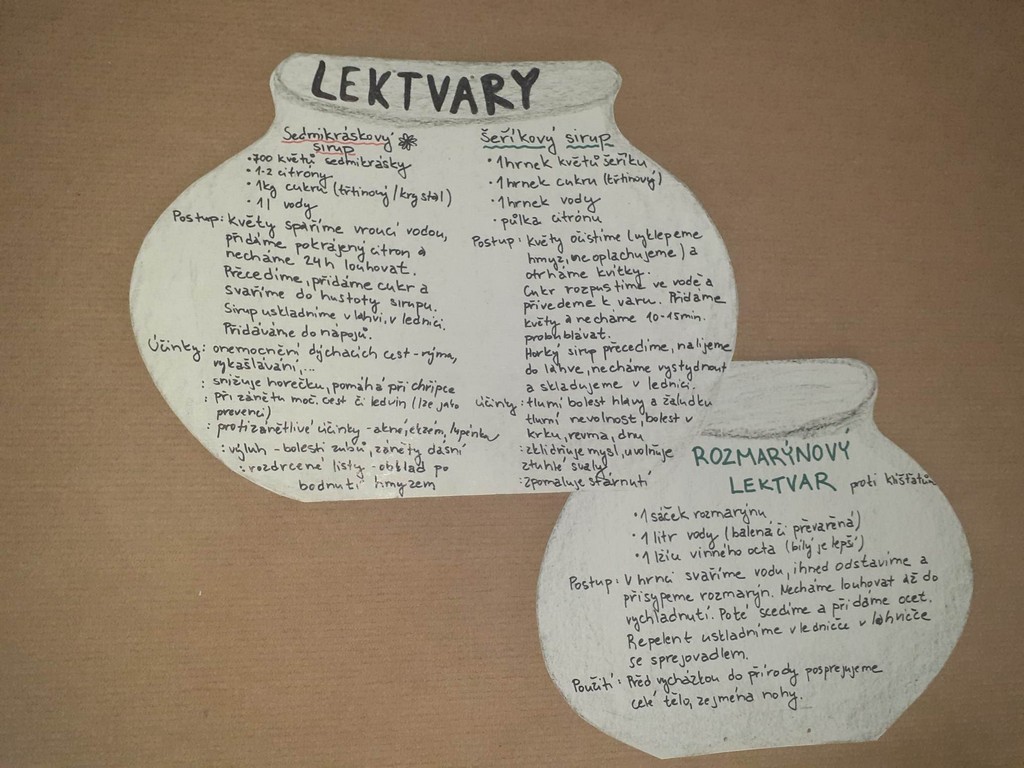 LEKTVARY
Sedmikráskový
sirup
• 700 květů sedmikrásky
• 1-2 citróny
• 1kg cukru (třtinový/krystal)
• 1l vody
Postup: Květy spaříme vroucí vodou,
přidáme pokrájený citron a
necháme 24h louhovat.
Přecedíme, přidáme cukr a
svaříme do hustoty sirupu.
Sirup uskladníme v lahvi, v lednici.
Přidáváme do nápojů.
Účinky: onemocnění dýchacích cest - rýma,
vykašlávání,...
: snižuje horečku, pomáhá při chřipce
: při zánětu moč. cest či ledvin (lze jako
prevenci)
: protizánětlivé účinky - akné, ekzém, lupénka
: výluh - bolesti zubů, záněty dásní
: rozdrcené listy - obklad po
bodnutí hmyzem
Šeříkový sirup
• 1 hrnek květů šeříku
• 1 hrnek cukru (třtinový)
• 1 hrnek vody
• půlka citrónu
Postup: Květy očistíme (vyklepeme
hmyz, ne oplachujeme) a
otrháme kvítky.
Cukr rozpustíme ve vodě a
přivedeme k varu. Přidáme
květy a necháme 10-15min.
probublávat.
Horký sirup přecedíme, nalijeme
do láhve, necháme vystydnout
a skladujeme v lednici.
Účinky: tlumí bolest hlavy a žaludku
tlumí nevolnost, bolest v
krku, revma, dnu
: zklidňuje mysl, uvolňuje
ztuhlé svaly
: zpomaluje stárnutí
ROZMARÝNOVÝ
LEKTVAR proti klíšťatům
• 1 sáček rozmarýnu
• 1 litr vody (balená či převařená)
• 1 lžíci vinného octa (bílý je lepší)
Postup: V hrnci svaříme vodu, ihned odstavíme a
přisypeme rozmarýn. Necháme louhovat až do
vychladnutí. Poté scedíme a přidáme ocet.
Repelent uskladníme v ledničce v lahvičce
se sprejovadlem.
Použití: Před vycházkou do přírody posprejujeme
celé tělo, zejména nohy.